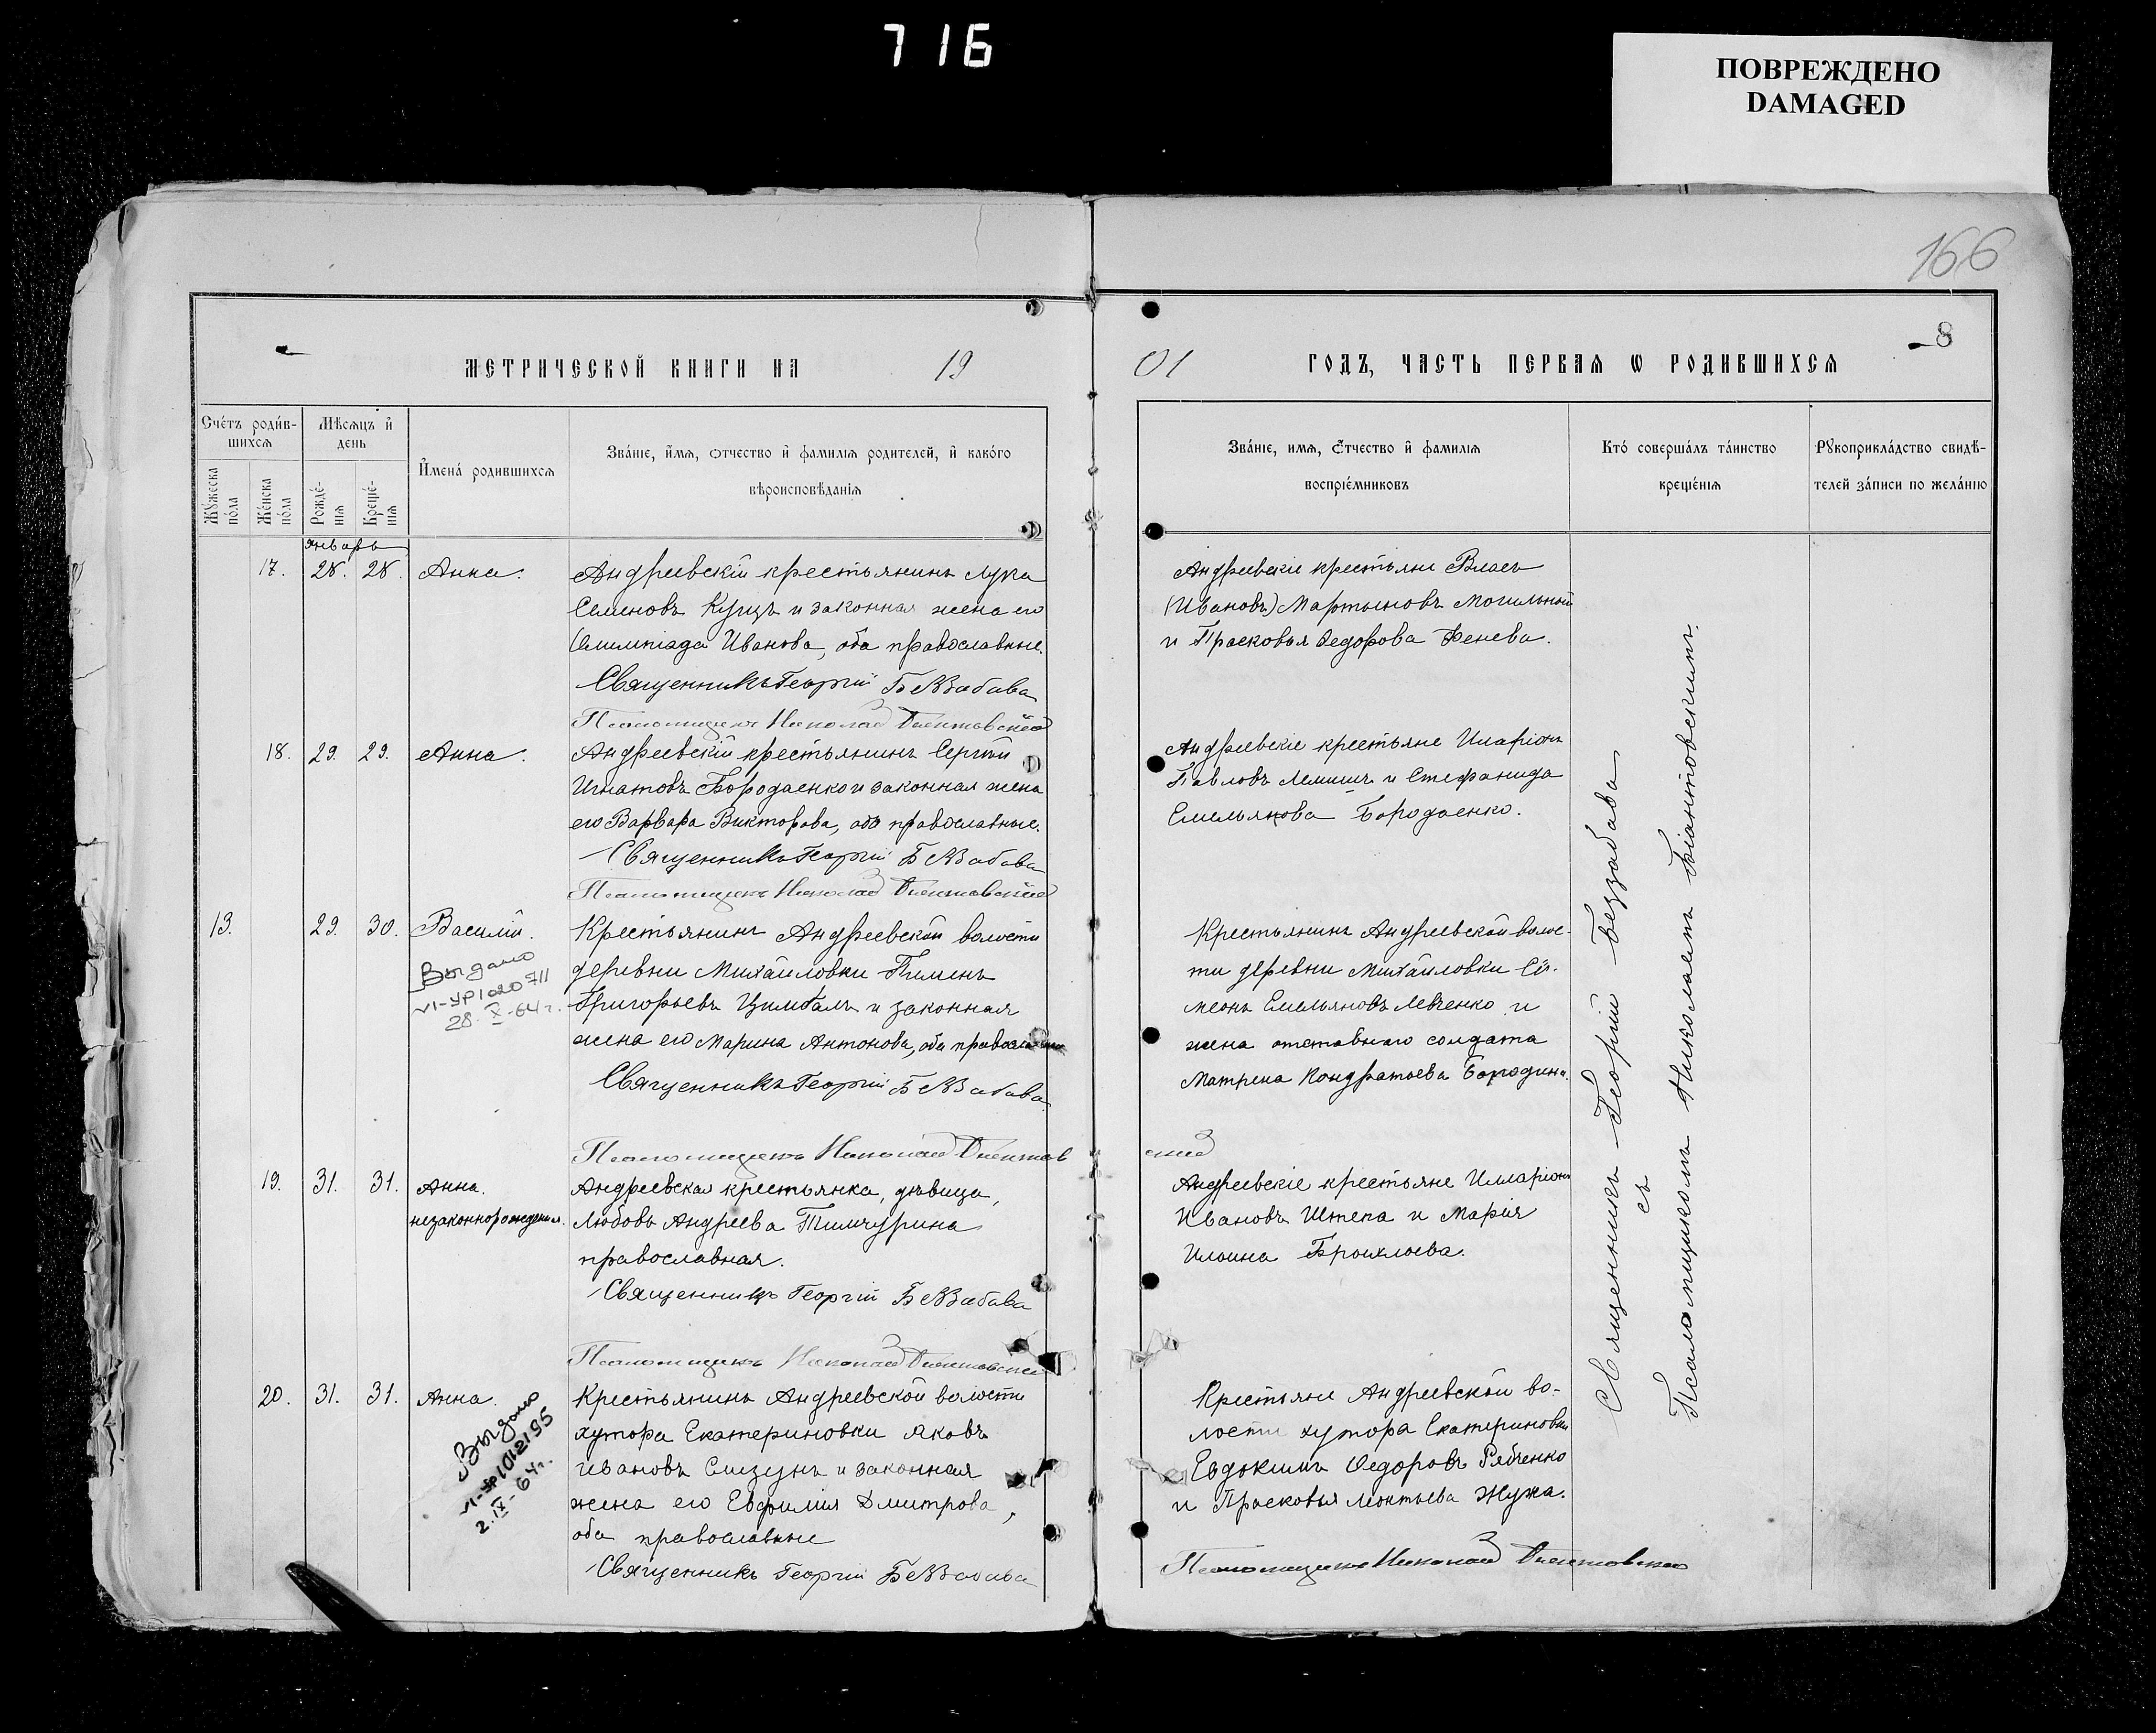 716
ПОВРЕЖДЕНО
DAMAGED
166
8
МЕТРИЧЕСКОЙ КНИГИ НА 19
01 ГОДЪ, ЧАСТЬ ПЕРВАЯ Ѡ РОДИВШИХСЯ
Счетъ родив-
шихся
Мѣсяцъ и
день
Имена родившихся
Званіе, имя, отчество и фамилія родителей, и какого
вѣроисповѣданія
Мужеска
пола
Женска
пола
Рожде-
нія
Креще-
нія
Званіе, имя, отчество и фамилія
воспріемниковъ
Кто совершалъ таинство
крещенія
Рукоприкладство свидѣ-
телей записи по желанію
Январь
17. 28. 28. Анна.
Андреевскій крестьянинъ Лука
Семеновъ Куцъ и законная жена его
Олимпіада Иванова, оба православные.
Священникъ Георгій Беззабава
Псаломщикъ Николай
Андреевскіе крестьяне Власъ
(Ивановъ) Мартыновъ Могильный
и Прасковья Федорова Фенева.
18. 29. 29. Анна.
Андреевскій крестьянинъ Сергѣй
Игнатовъ Бородаенко и законная жена
его Варвара Викторова, оба православные.
Священникъ Георгій Беззабава
Псаломщикъ Николай
Андреевскіе крестьяне Иларіонъ
Павловъ Лемишъ и Стефанида
Емельянова Бородаенко.
13. 29. 30. Василій.
Выдано
VI-УР 1020711
28.X-64 г.
Крестьянинъ Андреевской волости
деревни Михайловки Пименъ
Григорьевъ Цимбалъ и законная
жена его Марина Антонова, оба православные
Священникъ Георгій Беззабава
Псаломщикъ Николай
Крестьянинъ Андреевской волос-
ти деревни Михайловки Си-
меонъ Емельяновъ Левченко и
жена отставного солдата
Матрена Кондратьева Бородина.
19. 31. 31. Анна.
незаконнорожденная.
Андреевская крестьянка, дѣвица,
Любовь Андреева Тимчурина
православная.
Священникъ Георгій Беззабава
Псаломщикъ Николай
Андреевскіе крестьяне Илларіонъ
Ивановъ Штепа и Марія
Ильина
20. 31. 31. Анна.
Выдано
2.IX-64 г.
Крестьянинъ Андреевской волости
хутора Екатериновки Яковъ
Ивановъ и законная
жена его Евфимія Дмитрова,
оба православные
Священникъ Георгій Беззабава
Крестьяне Андреевской во-
лости хутора Екатериновки
Евдокимъ Федоровъ Рябченко
и Прасковья Леонтьева Жужа.
Псаломщикъ Николай
Священникъ Георгій Беззабава
съ
Псаломщикомъ Николаемъ Біантовскимъ.